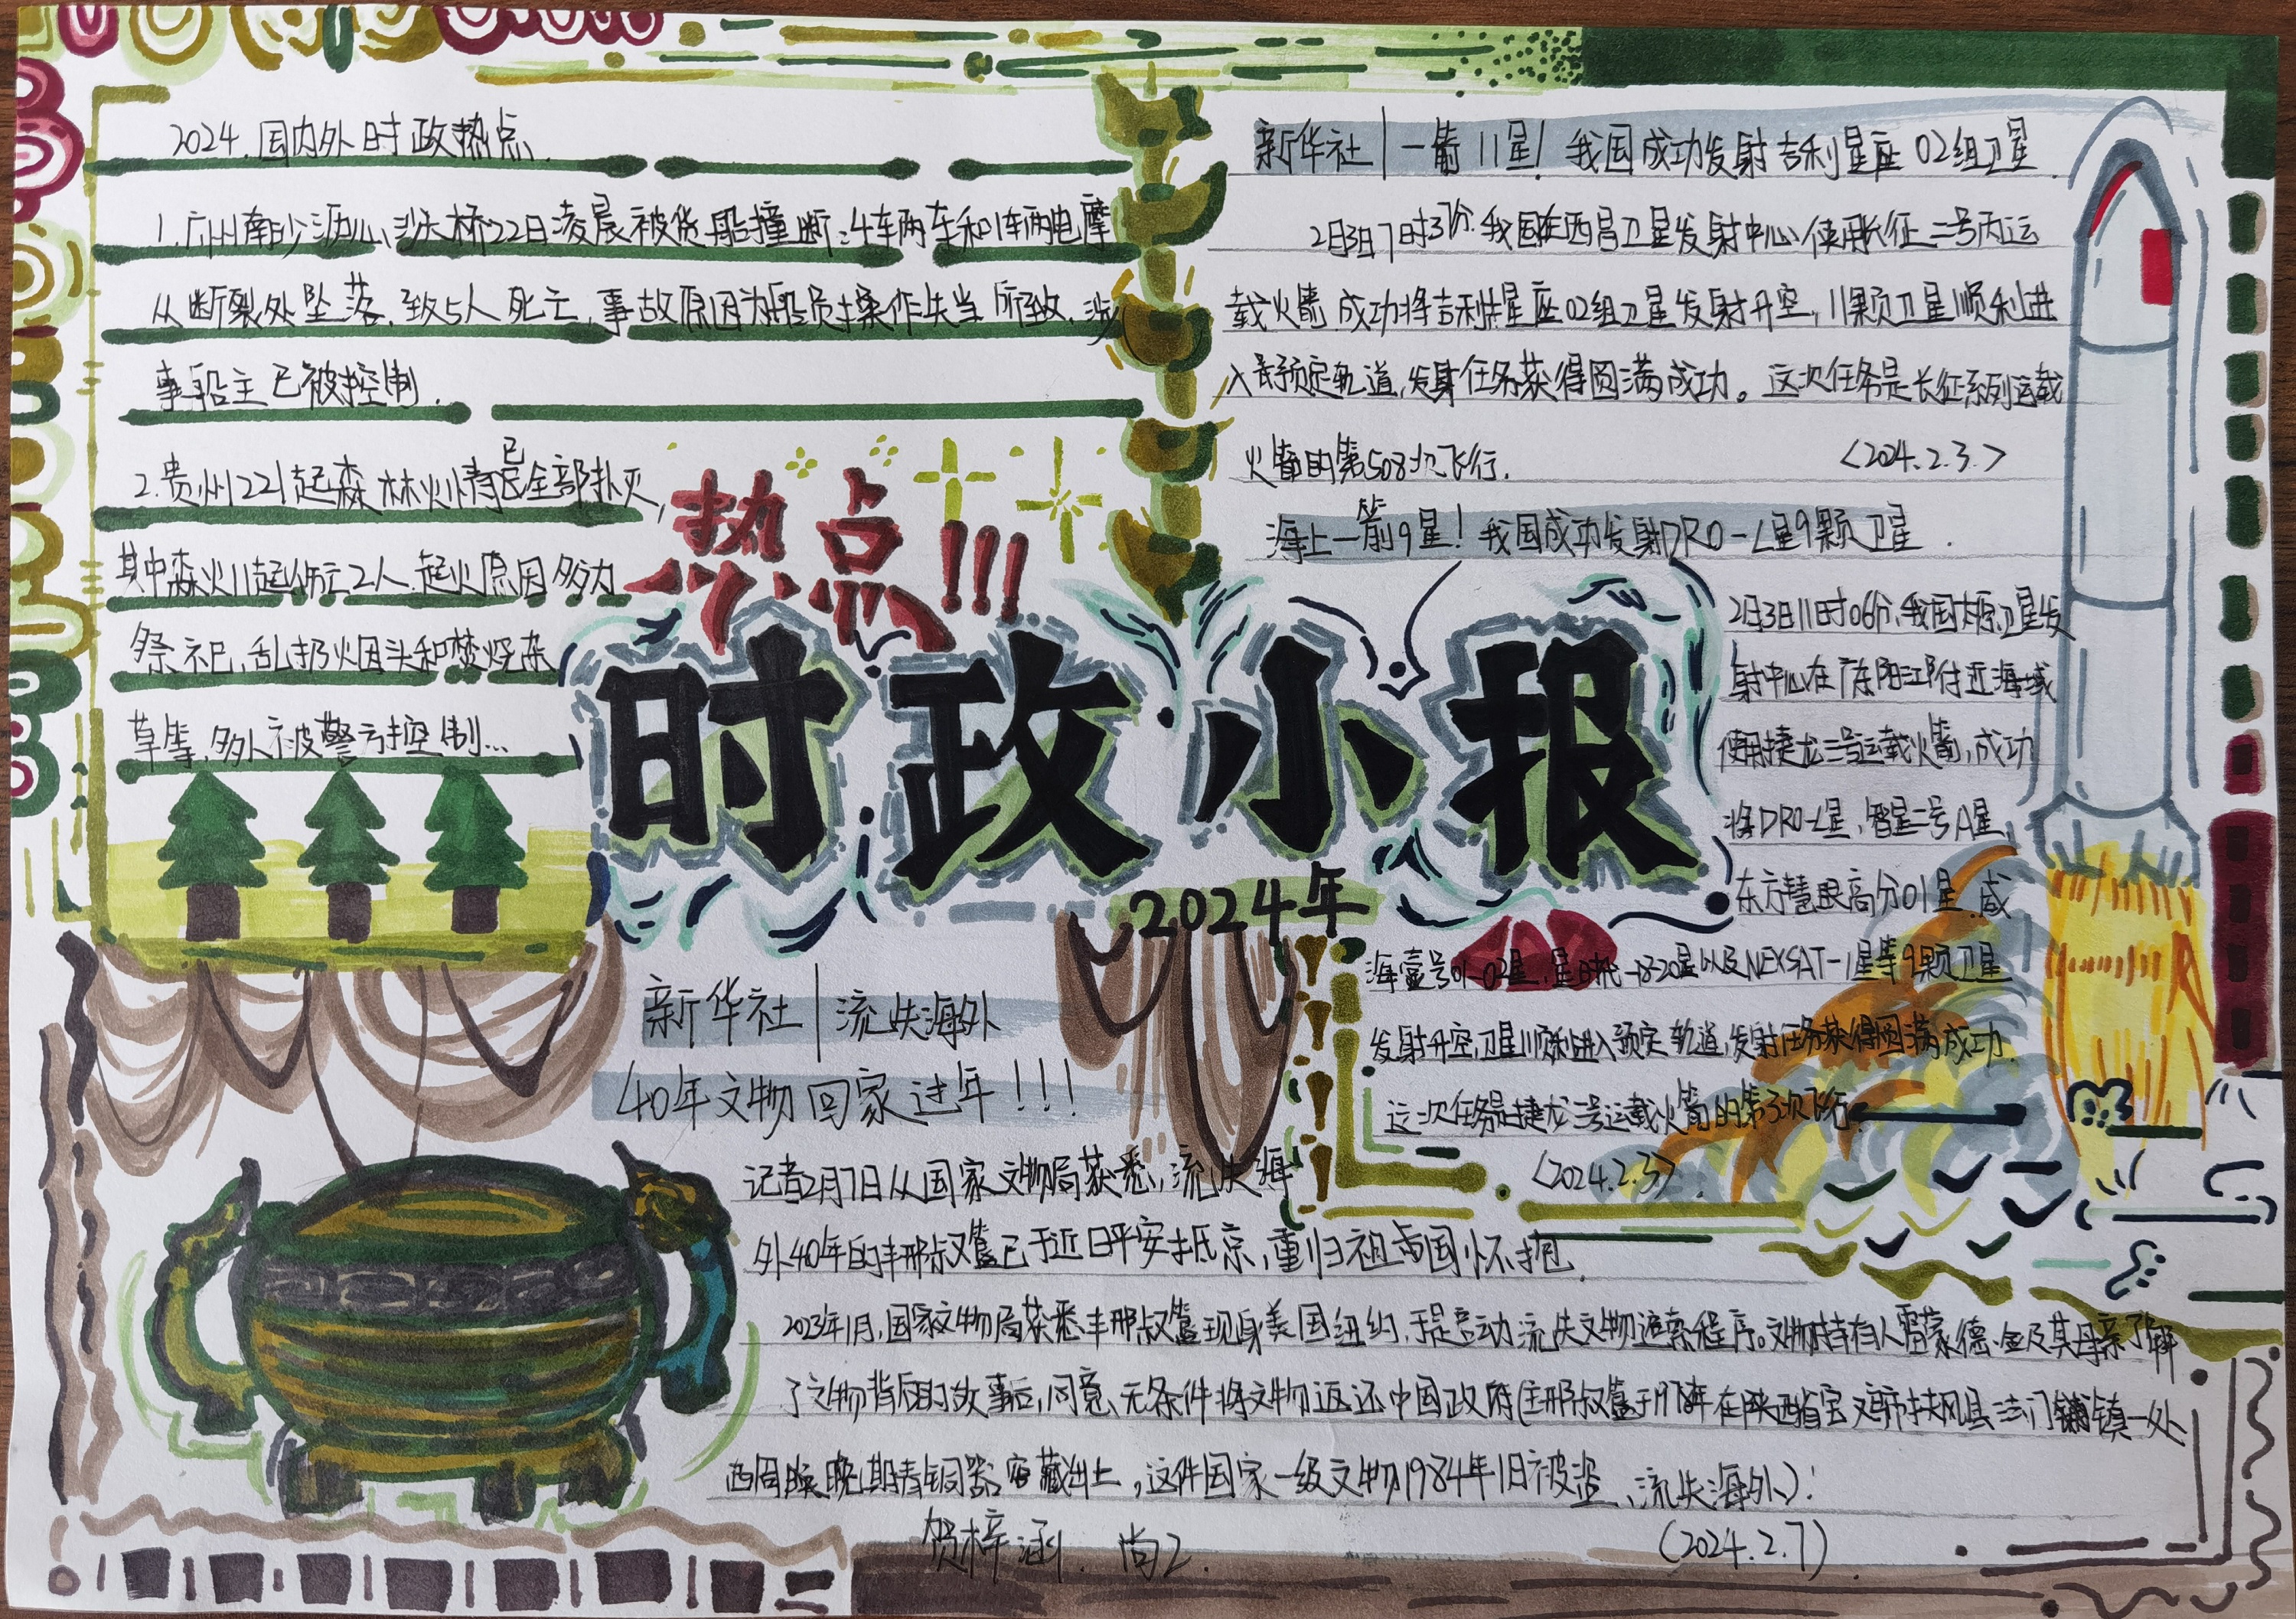 2024.国内外时政热点.
1.广州南沙沥心沙大桥22日凌晨被货船撞断,4车两车和1车两电摩
从断裂处坠落,致5人死亡,事故原因为船员操作失当所致,涉
事船主已被控制.
已
2.贵州221起森林火情已全部扑灭,
其中森火11起伤亡2人.起火原因多为
祭祀,乱扔烟头和焚烧杂
草等,多人被警方控制...
热点!!!
时政小报
2024年
新华社|一箭11星!我国成功发射吉利星座02组卫星
2月3日7时37分.我国在西昌卫星发射中心使用长征二号丙运
载火箭.成功将吉利星座02组卫星发射升空,11颗卫星顺利进
入预定轨道,发射任务获得圆满成功。这次任务是长征系列运载
火箭的第508次飞行.
<2024.2.3.>
海上一箭9星!我国成功发射DRO-L星9颗卫星.
2月3日11时06分,我国太原卫星发
射中心在广东阳江附近海域
使用捷龙三号运载火箭,成功
将DRO-L星,智星二号A星,
东方慧眼高分01星.威
海壹号01-02星,星时代-18-20星以及NEXSAT-1星等9颗卫星
发射升空,卫星顺利进入预定轨道,发射任务获得圆满成功.
这次任务是捷龙三号运载火箭的第3次飞行.
<2024.2.3>.
新华社|流失海外
40年文物回家过年!!!
记者2月7日从国家文物局获悉,流失海
外40年的丰邢叔簋已于近日平安抵京,重归祖国怀抱.
2023年1月,国家文物局获悉丰邢叔簋现身美国纽约,于是启动流失文物追索程序。文物持有人雷蒙德·金及其母亲了解
了文物背后的故事后,同意无条件将文物返还中国政府(丰邢叔簋于1978年在陕西省宝鸡市扶风县法门镇一处
西周晚期青铜器窖藏出土,这件国家一级文物1984年1日被盗,流失海外).
贺梓涵. 尚2.
(2024.2.7).